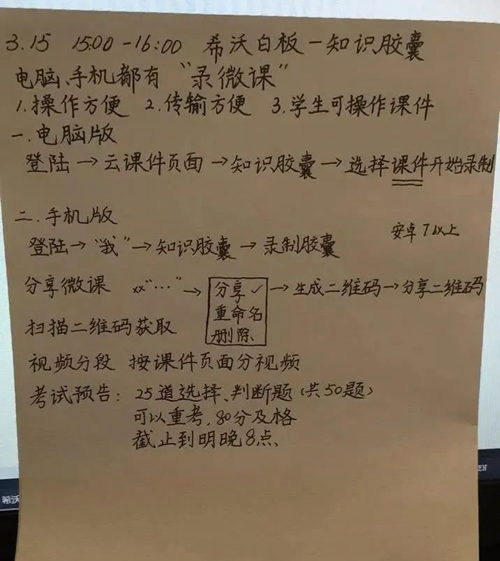 3.15 15:00-16:00 希沃白板-知识胶囊
电脑、手机都有 "录微课"
1.操作方便 2.传输方便 3.学生可操作课件
一.电脑版
登陆→云课件页面→知识胶囊→选择课件开始录制
二.手机版
安卓7以上
登陆→"我"→知识胶囊→录制胶囊
分享微课 xx"…"→
分享✓
重命名
删除
→生成二维码→分享二维码
扫描二维码获取
视频分段 按课件页面分视频
考试预告: 25道选择、判断题(共50题)
可以重考,80分及格
截止到明晚8点、
希沃